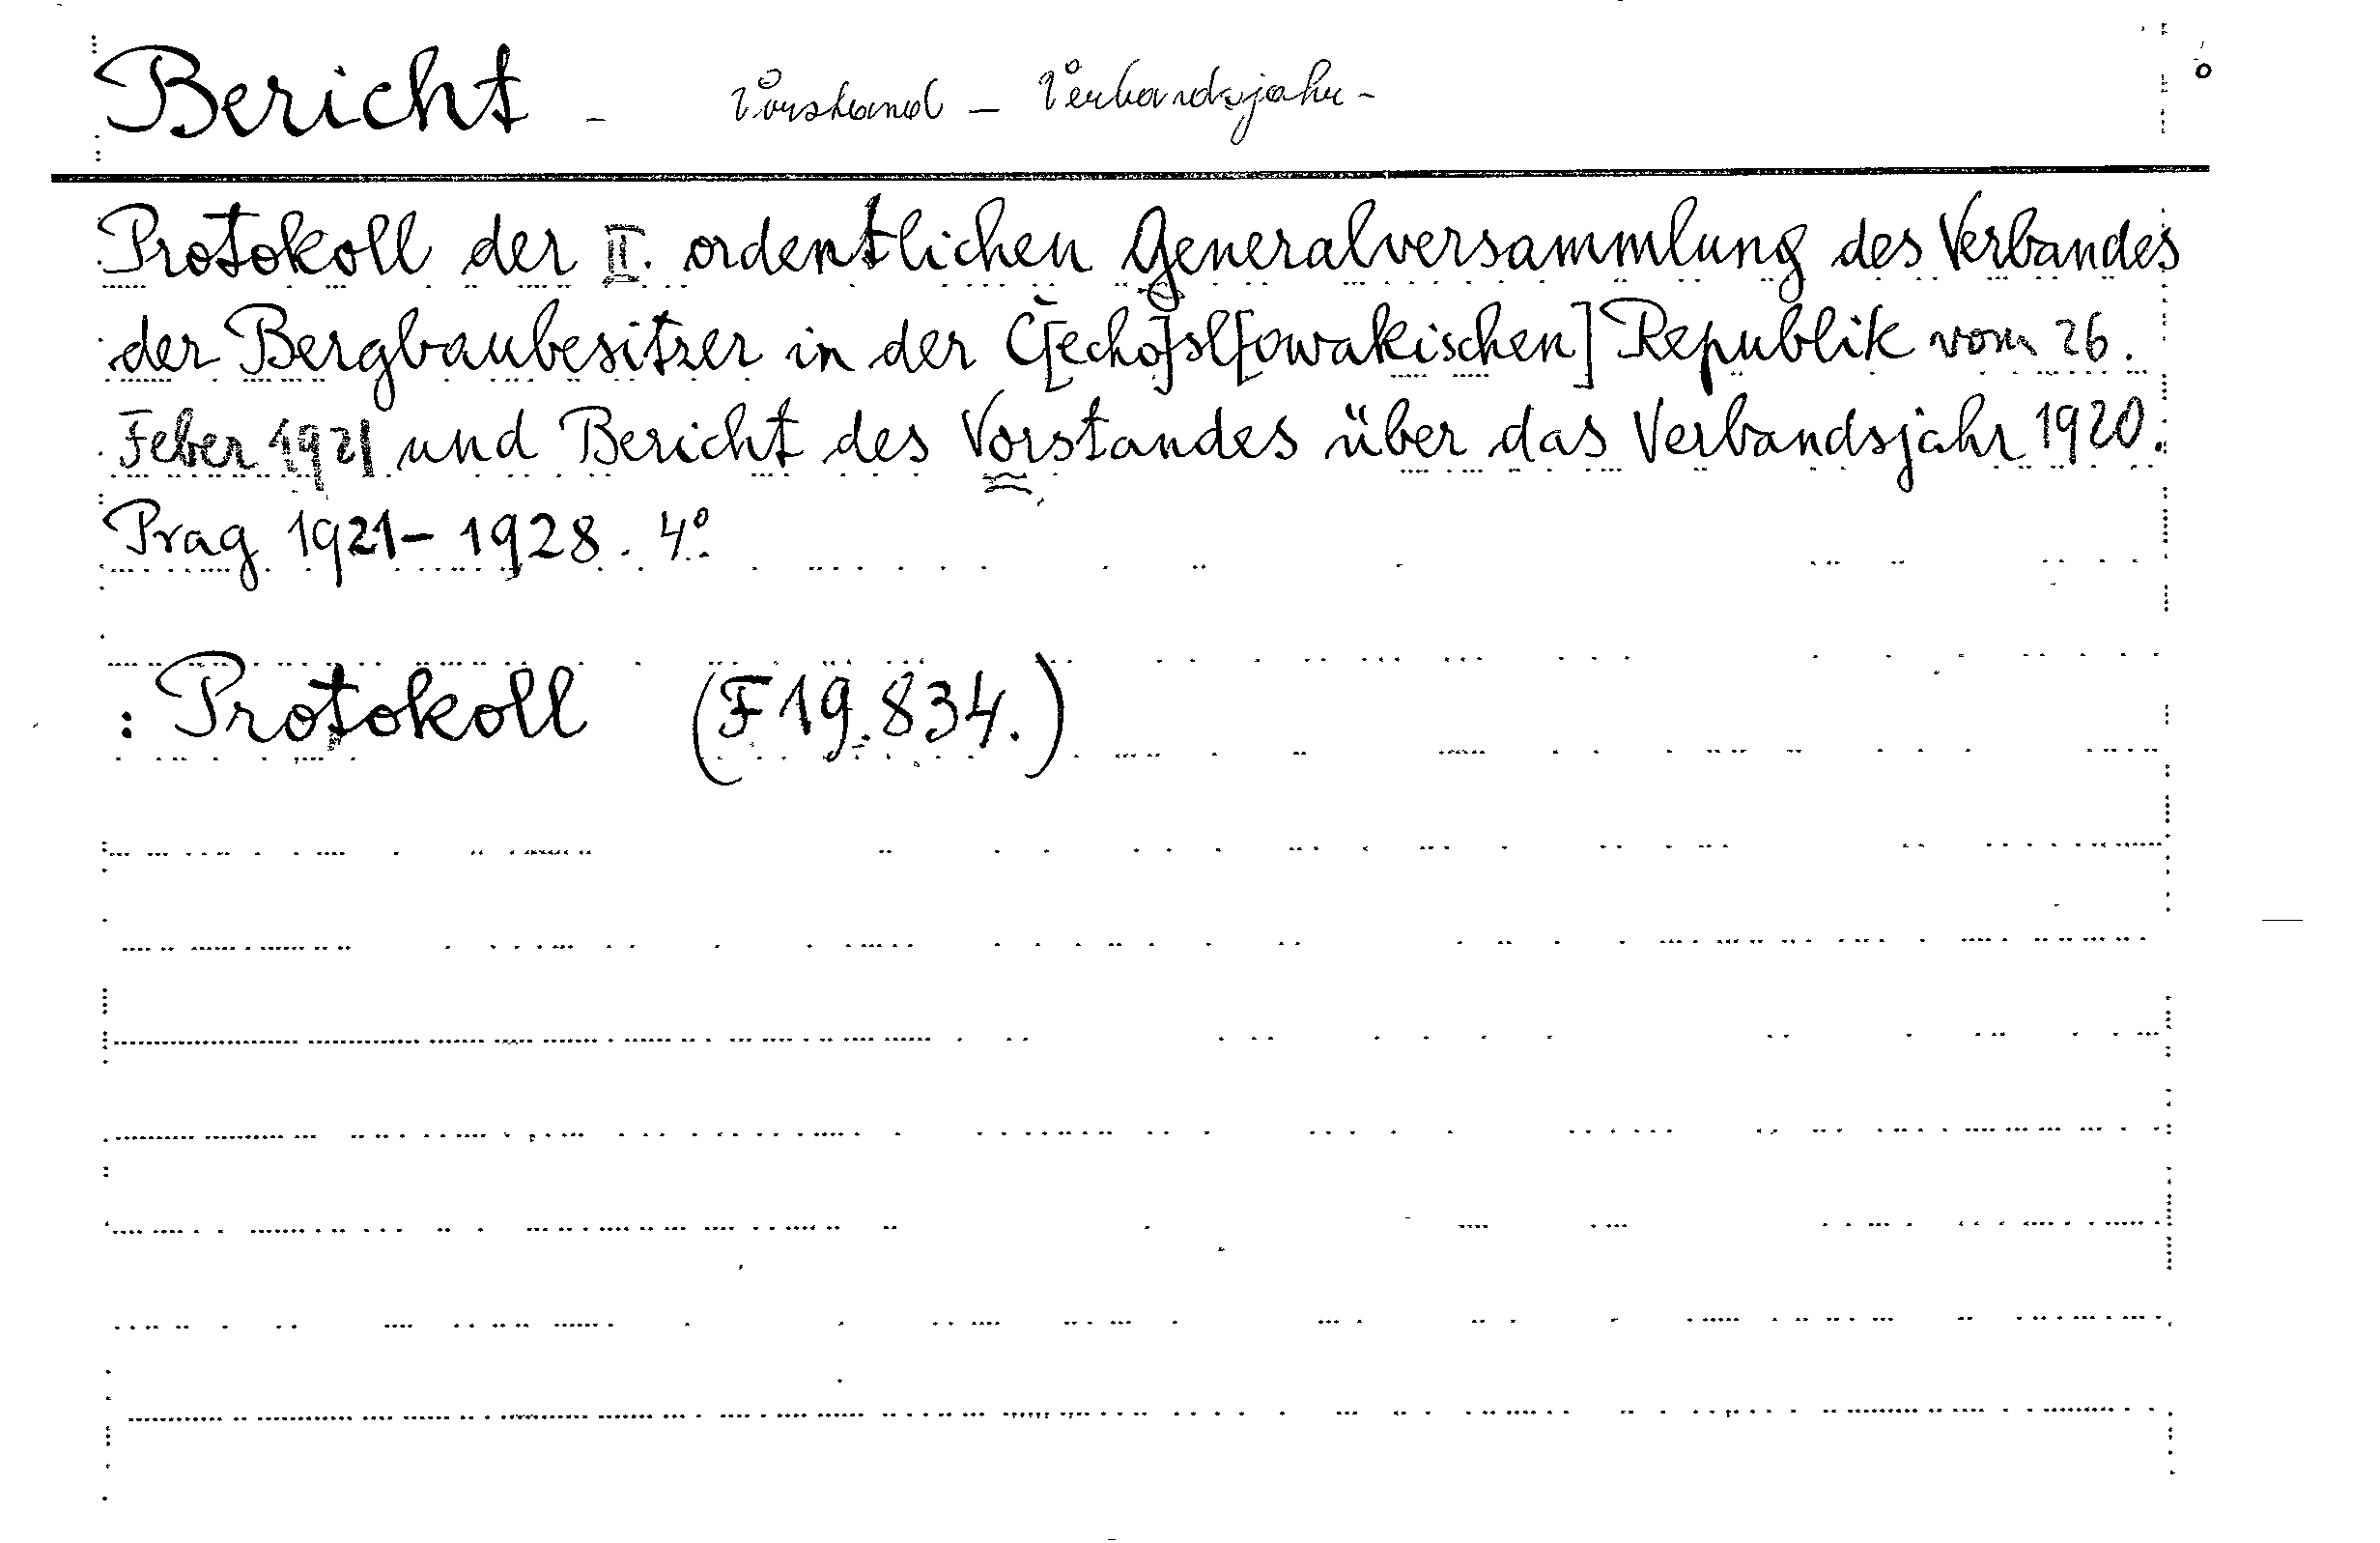 Bericht - Vorstand - Verbandsjahr -
Protokoll der II. ordentlichen Generalversammlung des Verbandes
der Bergbaubesitzer in der Č[echo]sl[owakischen] Republik vom 26.
Feber 1921 und Bericht des Vorstandes über das Verbandsjahr 1920.
Prag 1921- 1928. 4°.
: Protokoll (F 19.834.)